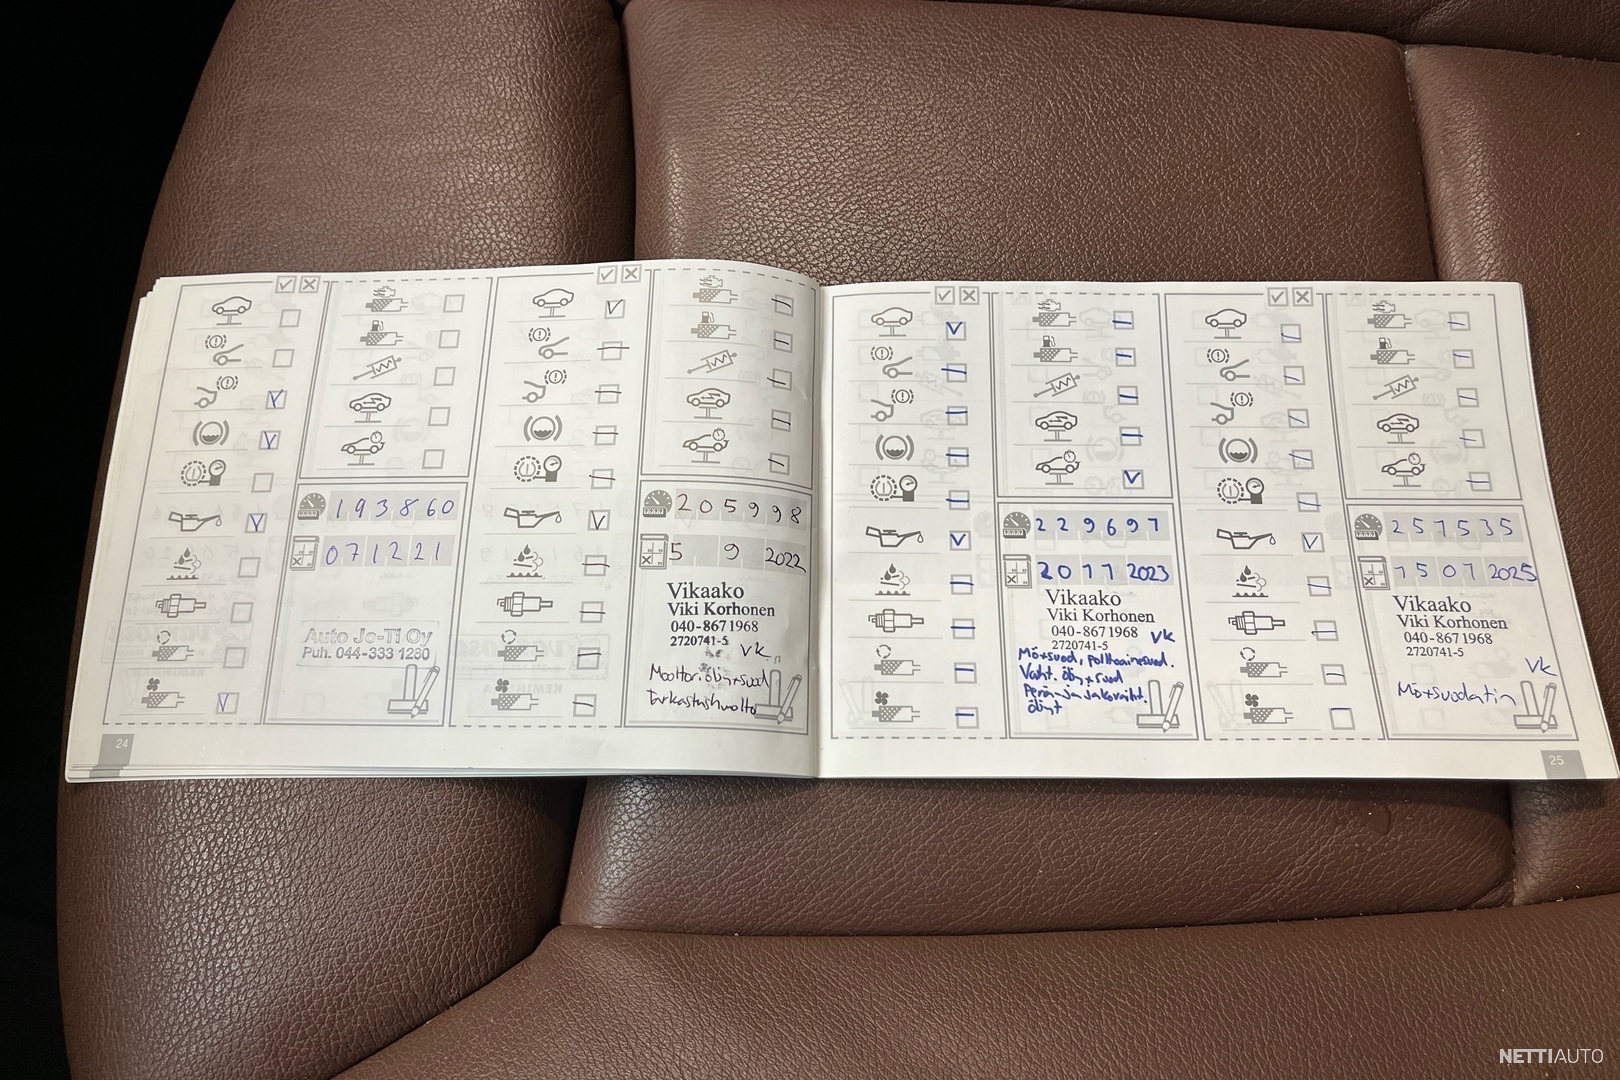 193860
071221
Auto Jo-Ti Oy
Puh. 044-333 1280
24
205998
5 9 2022
Vikaako
Viki Korhonen
040-867 1968
2720741-5
VK
Moottoriöljy+suod
Tarkastushuolto
229697
20 11 2023
Vikaako
Viki Korhonen
040-867 1968
2720741-5
VK
Mö+suod, polttoainesuod.
Vaiht. öljy+suod
Perä- ja jakovaiht.
öljyt
257535
15 07 2025
Vikaako
Viki Korhonen
040-867 1968
2720741-5
VK
Mö+suodatin
25
NETTIAUTO